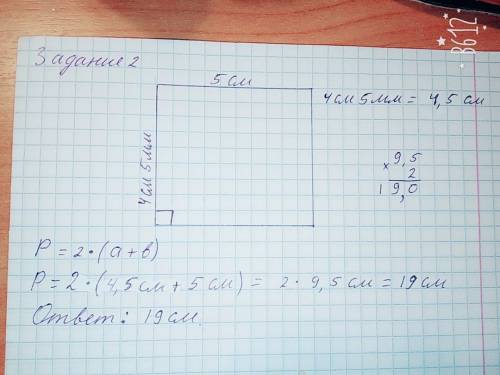 Задание 2
5 см
4 см 5 мм = 4,5 см
4 см 5 мм
× 9,5
2
19,0
P = 2·(a + в)
P = 2·(4,5 см + 5 см) = 2·9,5 см = 19 см
Ответ: 19 см.